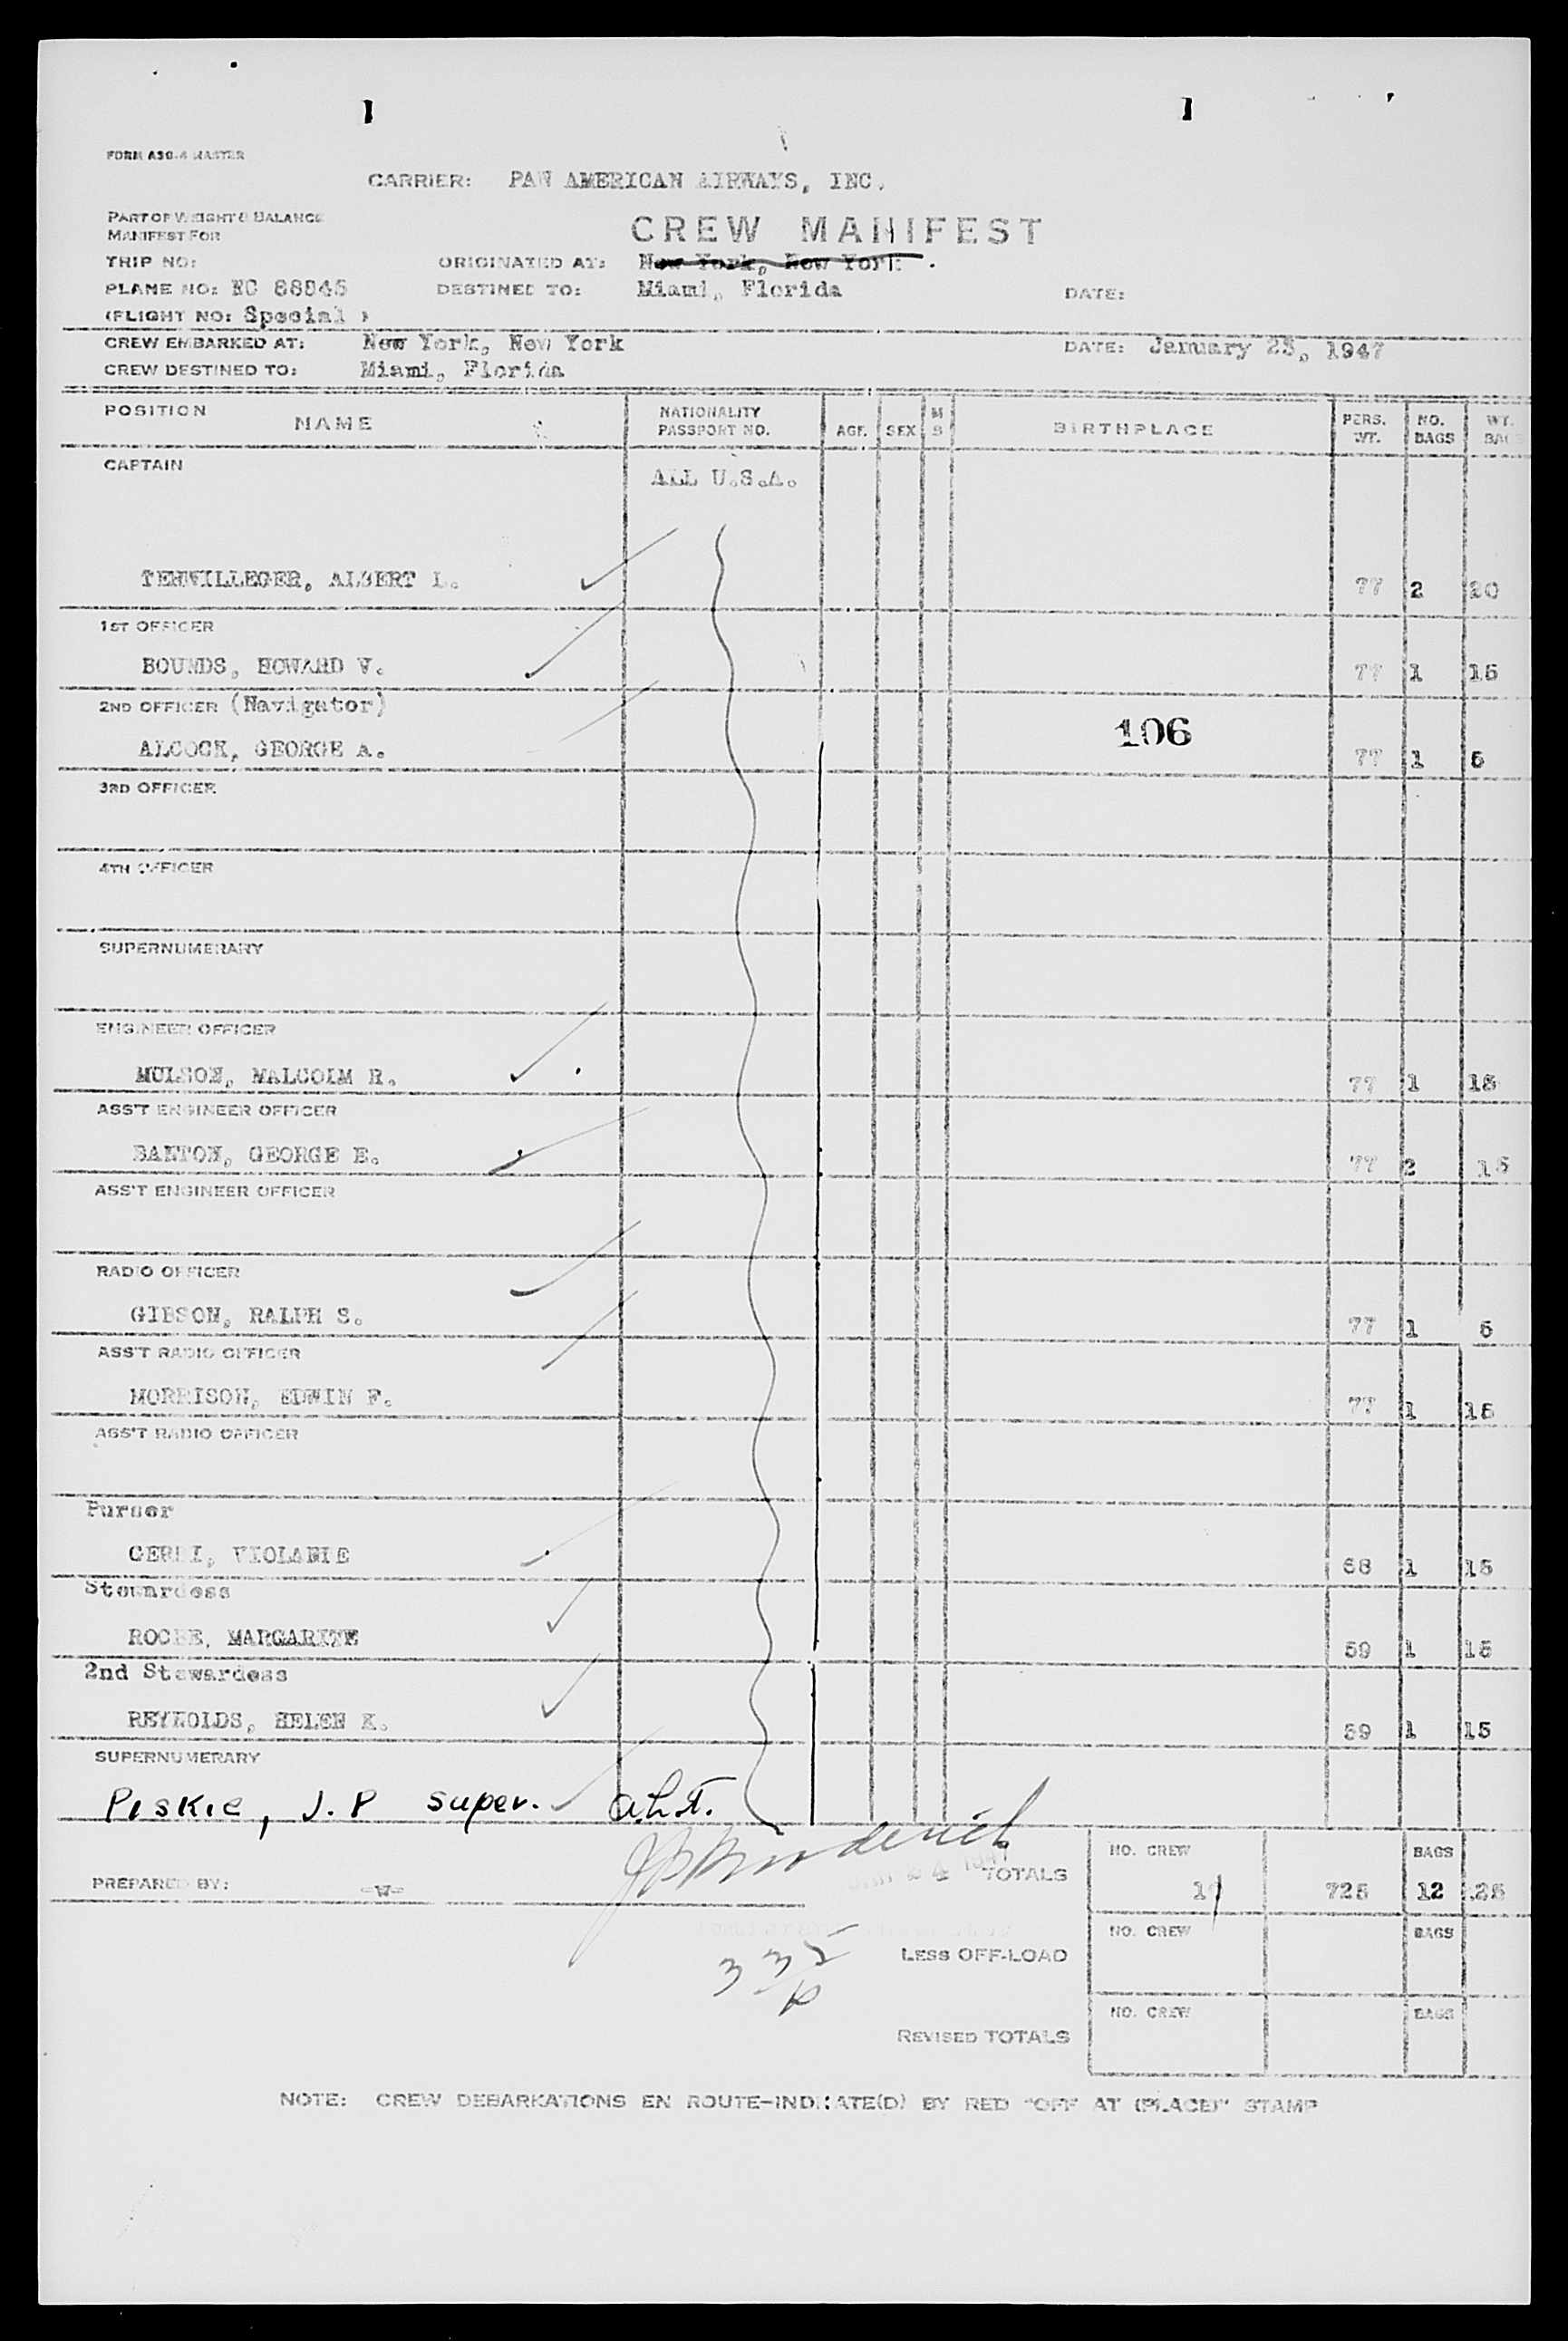 FORM A30-4 MASTER
CARRIER: PAN AMERICAN AIRWAYS, INC.
PART OF WEIGHT & BALANCE
MANIFEST FOR
CREW MANIFEST
TRIP NO: ORIGINATED AT: New York, New York
PLANE NO: NC 88945 DESTINED TO: Miami, Florida DATE:
(FLIGHT NO: Special )
CREW EMBARKED AT: New York, New York DATE: January 23, 1947
CREW DESTINED TO: Miami, Florida
POSITION NAME NATIONALITY PASSPORT NO. AGE SEX M S BIRTHPLACE PERS. WT. NO. BAGS WT. BAGS
CAPTAIN
ALL U.S.A.
TERWILLEGER, ALBERT L. 77 2 20
1ST OFFICER
BOUNDS, HOWARD V. 77 1 15
2ND OFFICER (Navigator)
106
ALCOCK, GEORGE A. 77 1 5
3RD OFFICER
4TH OFFICER
SUPERNUMERARY
ENGINEER OFFICER
MOLSON, MALCOLM R. 77 1 15
ASS'T ENGINEER OFFICER
BANTON, GEORGE E. 77 2 15
ASS'T ENGINEER OFFICER
RADIO OFFICER
GIBSON, RALPH S. 77 1 5
ASS'T RADIO OFFICER
MORRISON, EDWIN F. 77 1 15
ASS'T RADIO OFFICER
Purser
VIOLANIE 68 1 15
Stewardess
ROCHE, MARGARITE 59 1 15
2nd Stewardess
REYNOLDS, HELEN K. 59 1 15
SUPERNUMERARY
Piskie, J. P super. a.L.T.
NO. CREW BAGS
TOTALS 725 12
PREPARED BY: -W-
NO. CREW BAGS
LESS OFF-LOAD
335
NO. CREW BAGS
REVISED TOTALS
NOTE: CREW DEBARKATIONS EN ROUTE-INDICATE(D) BY RED "OFF AT (PLACE)" STAMP